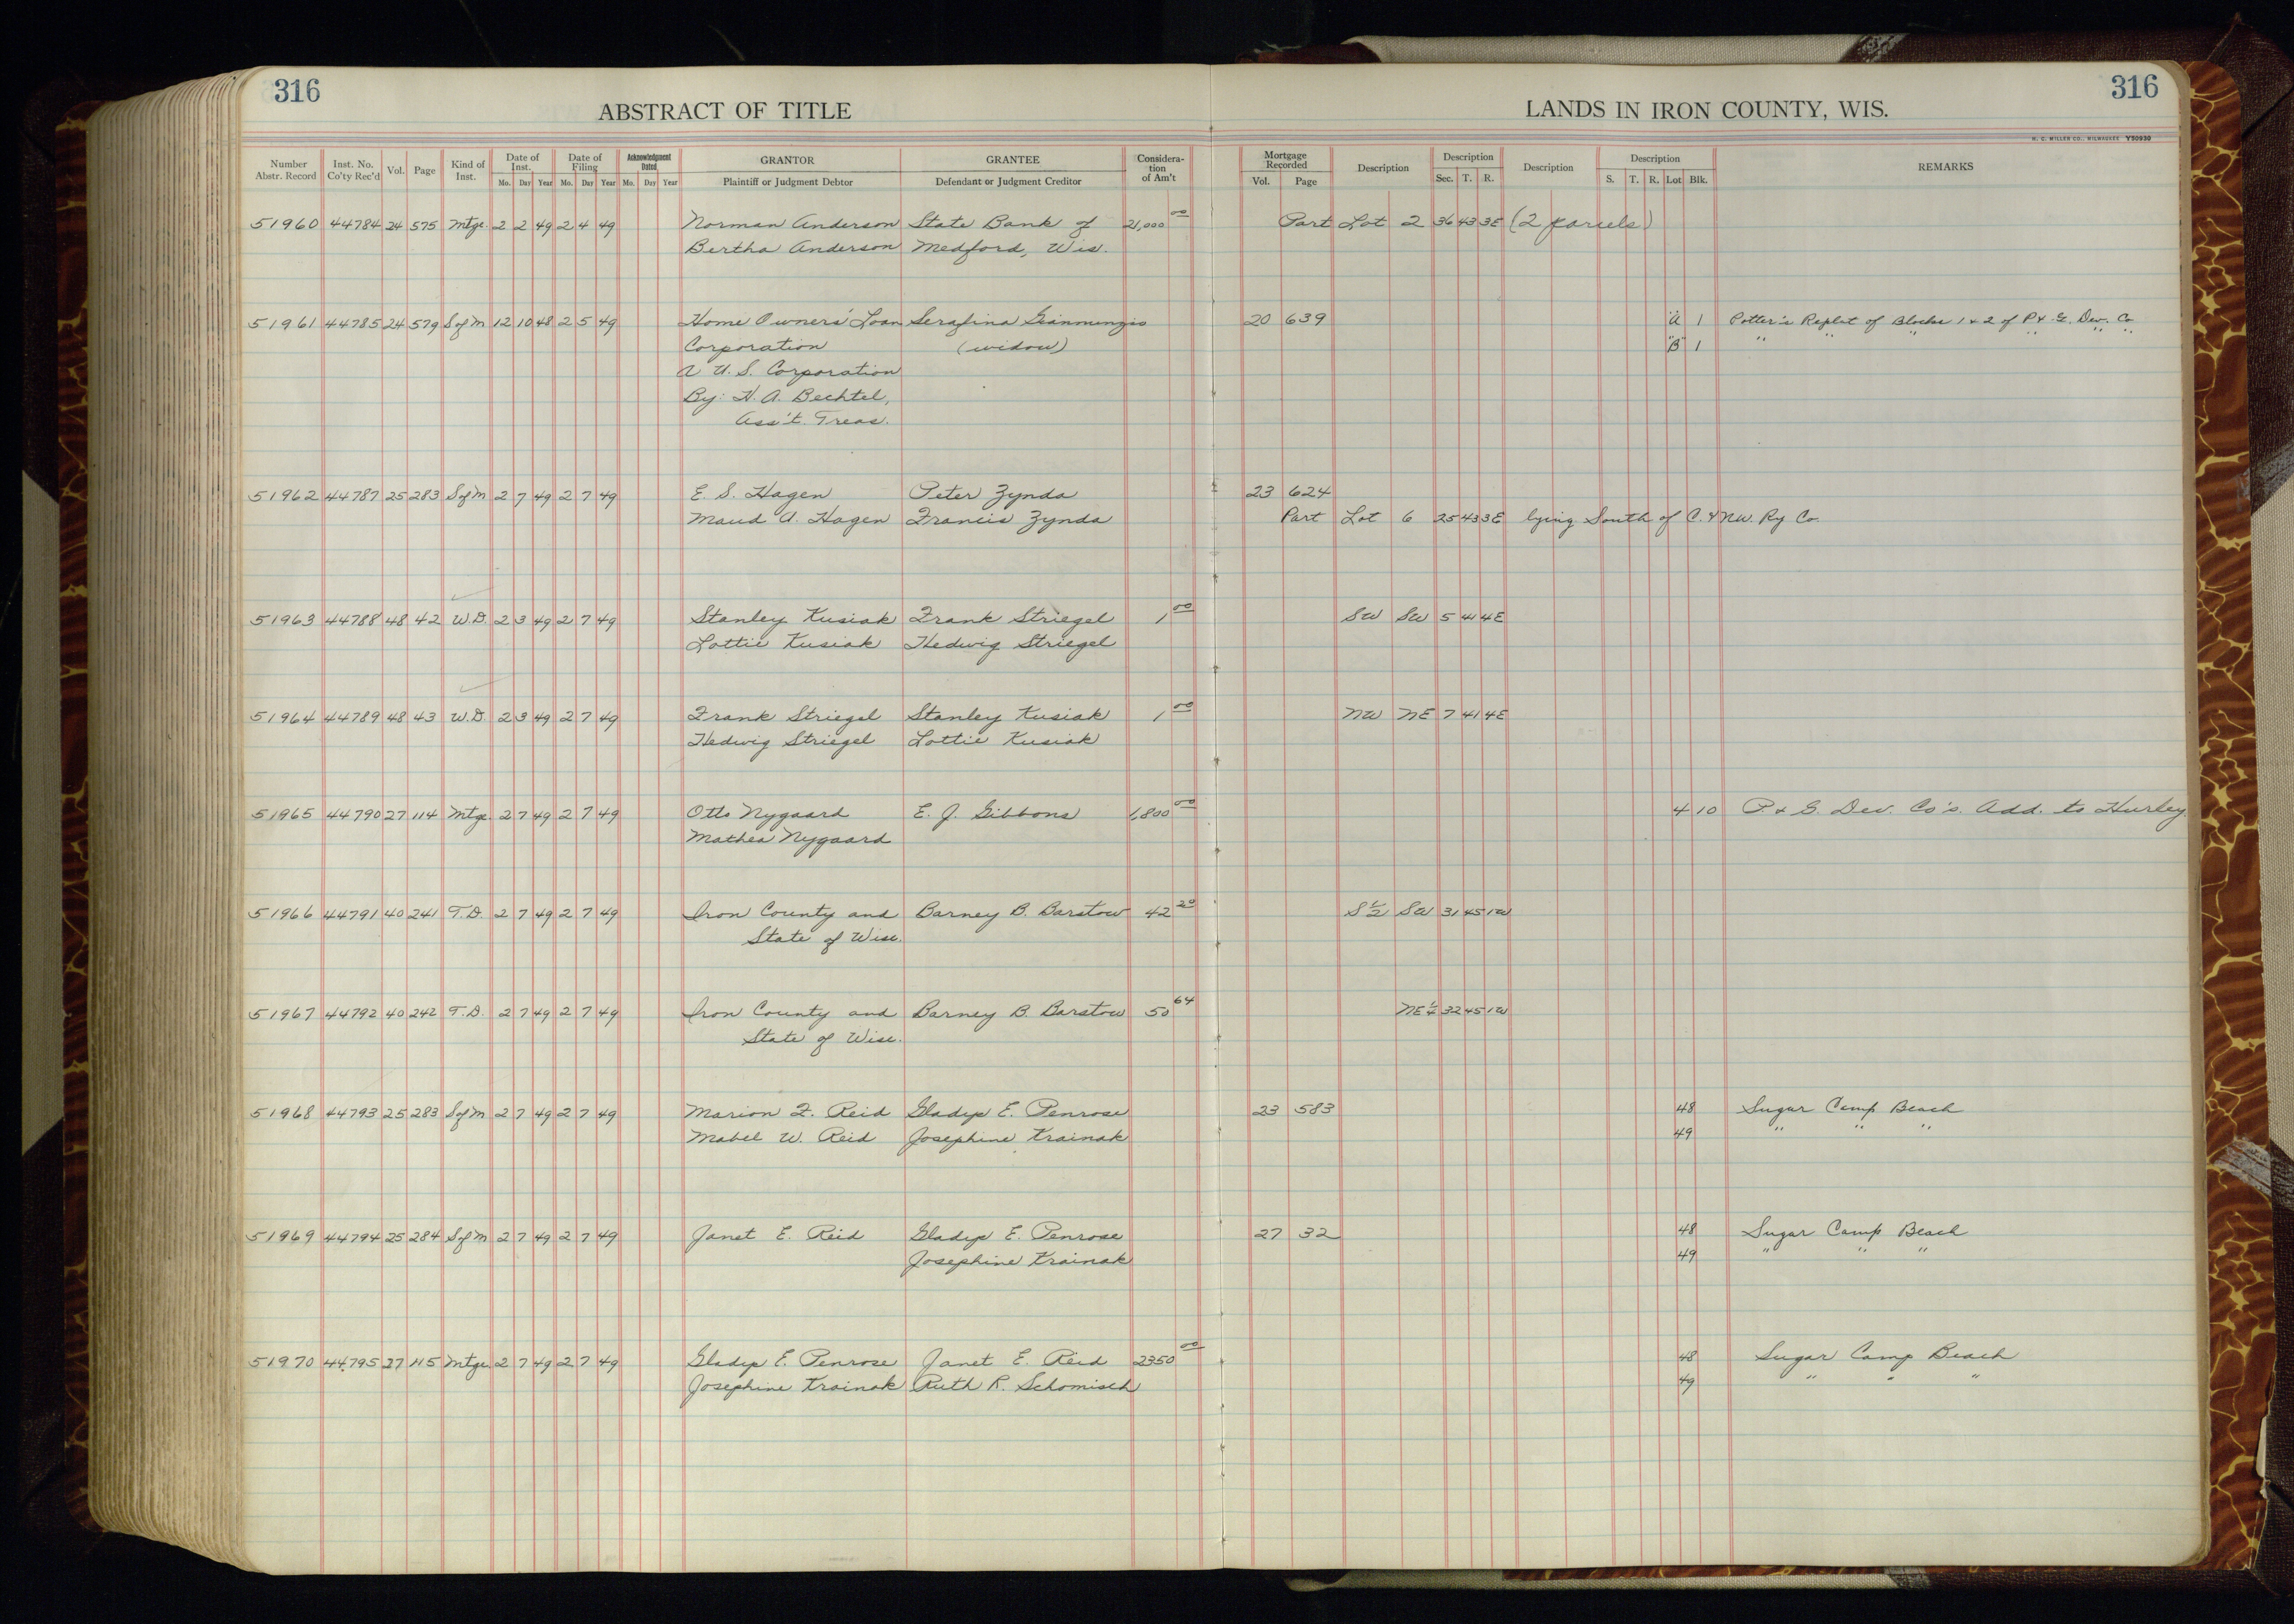 316
316
ABSTRACT OF TITLE
LANDS IN IRON COUNTY, WIS.
H. C. MILLER CO., MILWAUKEE Y50930
Number Abstr. Record Inst. No. Co'ty Rec'd Vol. Page Kind of Inst. Date of Inst. Mo. Day Year Date of Filing Mo. Day Year Acknowledgment Dated Mo. Day Year GRANTOR Plaintiff or Judgment Debtor GRANTEE Defendant or Judgment Creditor Considera-tion of Am't Mortgage Recorded Vol. Page Description Description Sec. T. R. Description Description S. T. R. Lot Blk. REMARKS
51960 44784 24 575 Mtge. 2 2 49 2 4 49 Norman Anderson State Bank of 21,000 00 Part Lot 2 36 43 3E (2 parcels)
Bertha Anderson Medford, Wis.
51961 44785 24 579 S of M 12 10 48 2 5 49 Home Owners' Loan Serafina Giannunzio 20 639 "A" 1 Potter's Replat of Blocks 1 & 2 of P. & G. Dev. Co
Corporation (widow) "B" 1 " " " " " "
A U. S. Corporation
By: H. A. Bechtel,
Ass't. Treas.
51962 44787 25 283 S of M 2 7 49 2 7 49 E. S. Hagen Peter Zynda 23 624
Maud A. Hagen Francis Zynda Part Lot 6 25 43 3E lying South of C. & N.W. Ry Co.
51963 44788 48 42 W.D. 2 3 49 2 7 49 Stanley Kusiak Frank Striegel 1 00 SW SW 5 41 4E
Lottie Kusiak Hedwig Striegel
51964 44789 48 43 W.D. 2 3 49 2 7 49 Frank Striegel Stanley Kusiak 1 00 NW NE 7 41 4E
Hedwig Striegel Lottie Kusiak
51965 44790 27 114 Mtge 2 7 49 2 7 49 Otto Nygaard E. J. Gibbons 1,800 00 4 10 P. & G. Dev. Co's. Add. to Hurley
Mathea Nygaard
51966 44791 40 241 T.D. 2 7 49 2 7 49 Iron County and Barney B. Barstow 42 20 S 1/2 SW 31 45 1W
State of Wisc.
51967 44792 40 242 T.D. 2 7 49 2 7 49 Iron County and Barney B. Barstow 50 64 NE 1/4 32 45 1W
State of Wisc.
51968 44793 25 283 S of M 2 7 49 2 7 49 Marion F. Reid Gladys E. Penrose 23 583 48 Sugar Camp Beach
Mabel W. Reid Josephine Krainak 49 " " "
51969 44794 25 284 S of M 2 7 49 2 7 49 Janet E. Reid Gladys E. Penrose 27 32 48 Sugar Camp Beach
Josephine Krainak 49 " " "
51970 44795 27 115 Mtge 2 7 49 2 7 49 Gladys E. Penrose Janet E. Reid 2350 00 48 Sugar Camp Beach
Josephine Krainak Ruth R. Schomisch 49 " " "